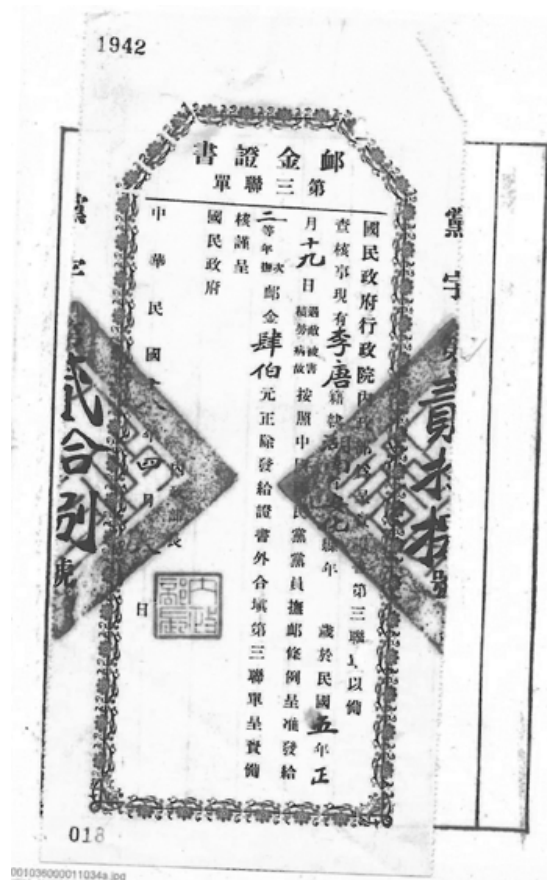 1942
卹金證書
第三聯單
國民政府行政院內政部
第三聯
以備
查核事現有李唐籍隸
年 歲於民國五年正
月十九日遇敵被害積勞病故按照中國國民黨黨員撫卹條例呈准發給
二等年撫次卹金肆伯元正除發給證書外合填第三聯單呈賫備
核謹呈
國民政府
內政部長
中華民國 年四月 日
黨字
黨字
號
號
018
001036000011034a.jpg